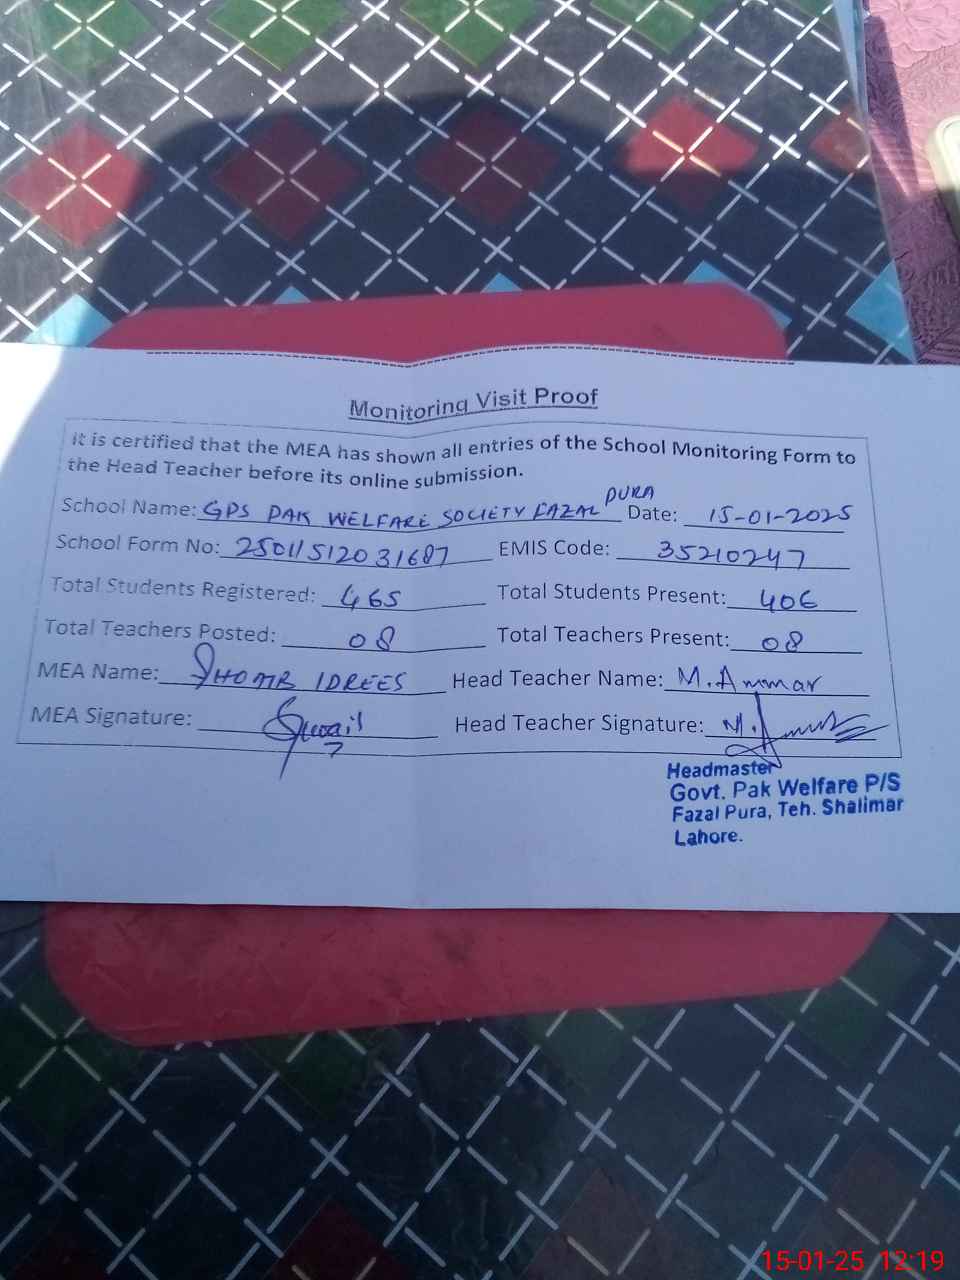 Monitoring Visit Proof
It is certified that the MEA has shown all entries of the School Monitoring Form to
the Head Teacher before its online submission.
School Name: GPS PAK WELFARE SOCIETY FAZAL PURA Date: 15-01-2025
School Form No: 25011512031687 EMIS Code: 35210247
Total Students Registered: 465 Total Students Present: 406
Total Teachers Posted: 08 Total Teachers Present: 08
MEA Name: IDREES Head Teacher Name: M. Ammar
MEA Signature: Head Teacher Signature:
Headmaster
Govt. Pak Welfare P/S
Fazal Pura, Teh. Shalimar
Lahore.
15-01-25 12:19